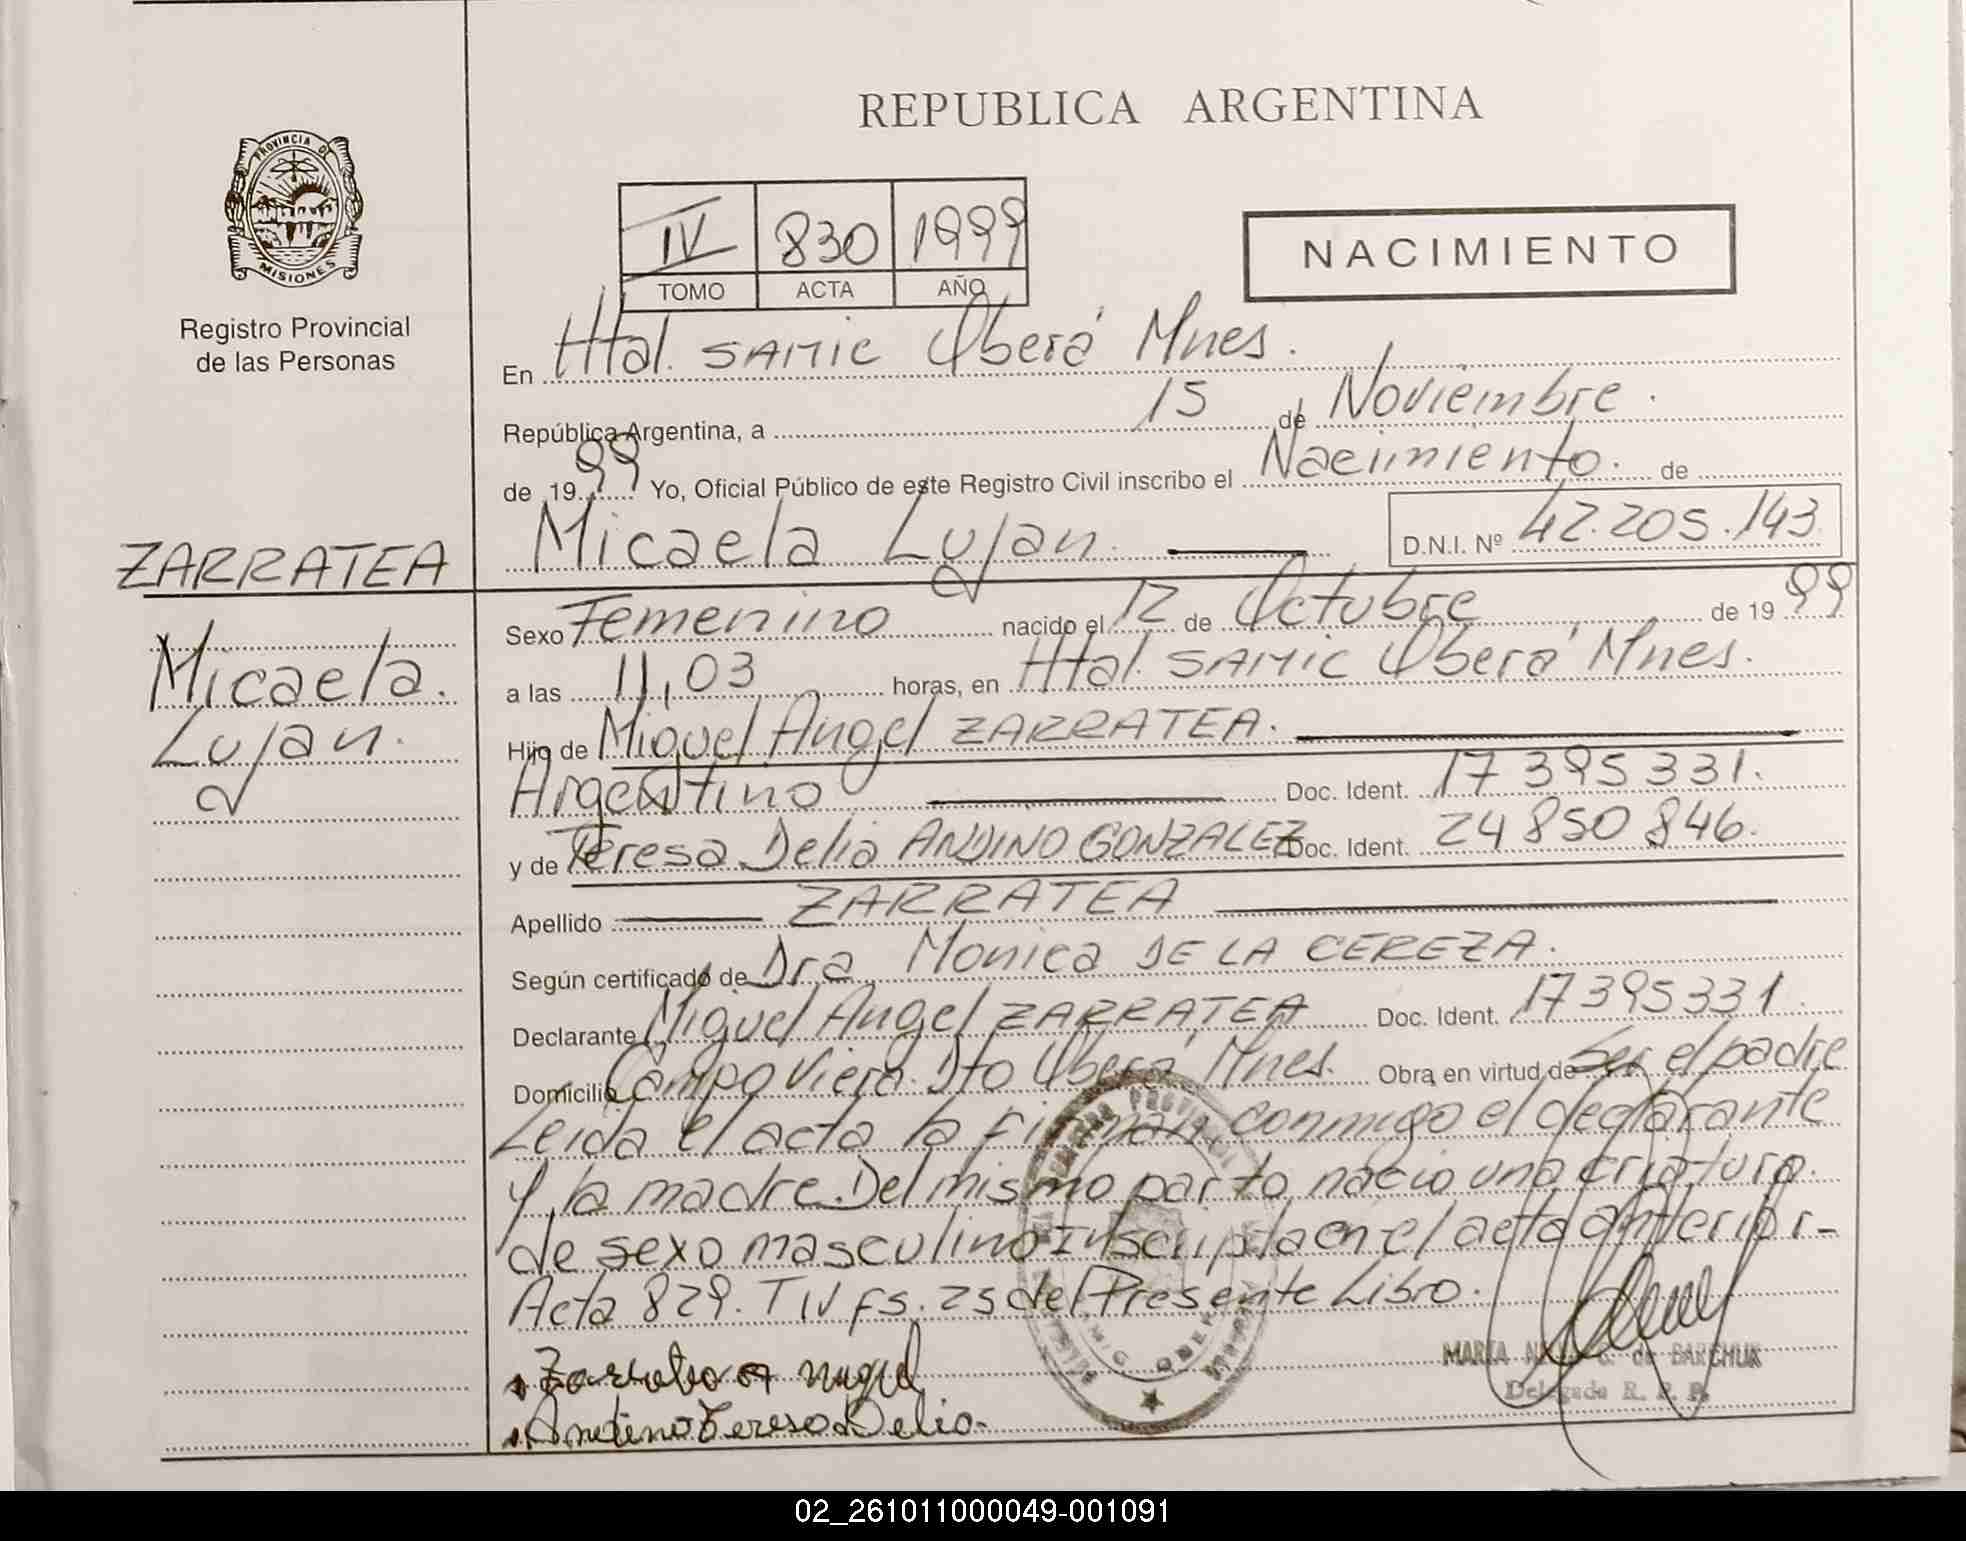 REPUBLICA ARGENTINA
PROVINCIA DE
MISIONES
Registro Provincial
de las Personas
IV 830 1999
TOMO ACTA AÑO
NACIMIENTO
En Htal. SAMIC Oberá Mnes.
República Argentina, a 15 de Noviembre.
de 1999 Yo, Oficial Público de este Registro Civil inscribo el Nacimiento. de
Micaela Lujan. D.N.I. Nº 42.205.143
ZARRATEA
Micaela.
Lujan.
Sexo Femenino nacido el 12 de Octubre de 1999
a las 11,03 horas, en Htal. SAMIC Oberá Mnes.
Hijo de Miguel Angel ZARRATEA.
Argentino Doc. Ident. 17 395 331.
y de Teresa Delia ANDINO GONZALEZ Doc. Ident. 24 850 846.
Apellido ZARRATEA
Según certificado de Dra Monica DE LA CEREZA.
Declarante Miguel Angel ZARRATEA Doc. Ident. 17395331.
Domicilio Campo Viera. Dto Oberá Mnes. Obra en virtud de Ser el padre
Leida el acta la firman, conmigo el declarante
y la madre. Del mismo parto nacio una criatura.
de sexo masculino Inscripta en el acta anterior-
Acta 829. T IV fs. 25 del Presente Libro.
Zarratea A Miguel
Andino Teresa Delia.
MARIA de BARCHUK
Delegada R. P. P.
02_261011000049-001091